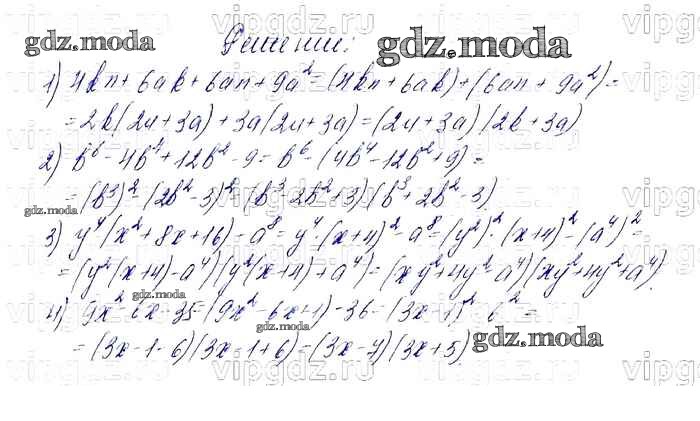 Решение:
gdz.moda
gdz.moda
1) 4bn + 6ab + 6an + 9a² = (4bn + 6ab) + (6an + 9a²) =
= 2b(2n + 3a) + 3a(2n + 3a) = (2n + 3a)(2b + 3a)
2) b⁶ - 4b⁴ + 12b² - 9 = b⁶ - (4b⁴ - 12b² + 9) =
= (b³)² - (2b² - 3)² = (b³ - 2b² + 3)(b³ + 2b² - 3).
gdz.moda
3) y⁴(x² + 8x + 16) - a⁸ = y⁴·(x+4)² - a⁸ = (y²)²·(x+4)² - (a⁴)² =
= (y²(x+4) - a⁴)(y²(x+4) + a⁴) = (xy² + 4y² - a⁴)(xy² + 4y² + a⁴).
gdz.moda
4) 9x² - 6x - 35 = (9x² - 6x + 1) - 36 = (3x - 1)² - 6² =
gdz.moda
= (3x - 1 - 6)(3x - 1 + 6) = (3x - 7)(3x + 5).
gdz.moda
vipgdz.ru